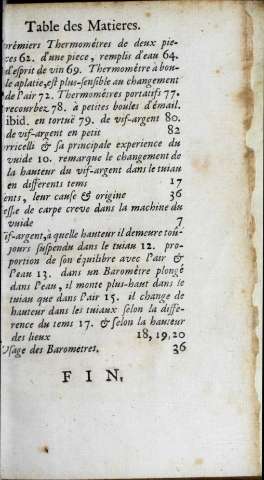 Table des Matieres.
prémiers Thermométres de deux pie-
ces 62. d'une piece, remplis d'eau 64.
d'esprit de vin 69. Thermométre à bou-
le aplatie, est plus-sensible au changement
de l'air 72. Thermométres portatifs 77.
recourbez 78. à petites boules d'émail.
ibid. en tortuë 79. de vif-argent 80.
de vif-argent en petit 82
orricelli & sa principale experience du
vuide 10. remarque le changement de
la hauteur du vif-argent dans le tuiau
en differents tems 17
ents, leur cause & origine 36
esse de carpe creve dans la machine du
vuide 7
if-argent, à quelle hauteur il demeure tou-
jours suspendu dans le tuiau 12. pro-
portion de son équilibre avec l'air &
l'eau 13. dans un Barométre plongé
dans l'eau, il monte plus-haut dans le
tuiau que dans l'air 15. il change de
hauteur dans les tuiaux selon la diffe-
rence du tems 17. & selon la hauteur
des lieux 18, 19, 20
Usage des Barometres. 36
FIN.